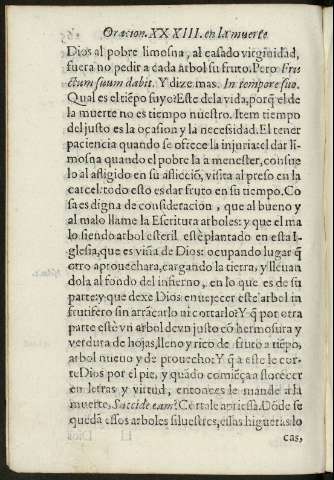 Oracion. XXXIII. en la muerte
Dios al pobre limosna, al casado virginidad,
fuera no pedir a cada arbol su fruto. Pero Fru
ctum suum dabit. Y dize mas. In tempore suo.
Qual es el tiẽpo suyo? Este de la vida, porq̃ el de
la muerte no es tiempo nuestro. Item tiempo
del justo es la ocasion y la necessidad. El tener
paciencia quando se ofrece la injuria: el dar li-
mosna quando el pobre la a menester, consue
lo al afligido en su aflicciõ, visita al preso en la
carcel: todo esto es dar fruto en su tiempo. Co
sa es digna de consideracion, que al bueno y
al malo llame la Escritura arboles: y que el ma
lo siendo arbol esteril estè plantado en esta I-
glesia, que es viña de Dios: ocupando lugar q̃
otro aprouechara, cargando la tierra, y lleuan
dola al fondo del infierno, en lo que es de su
parte: y que dexe Dios enuejecer este arbol in
frutifero sin arrãcarlo ni cortarlo? Y q̃ por otra
parte estè vn arbol de vn justo cõ hermosura y
verdura de hojas, lleno y rico de fruto a tiẽpo,
arbol nueuo y de prouecho: Y q̃ a este le cor-
te Dios por el pie, y quãdo comiẽça a florecer
en letras y virtud, entonces le mande a la
muerte, Succide eam? Cortale apriessa. Dõde se
queda essos arboles siluestres, essas higueras lo
cas,